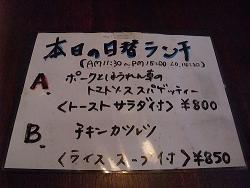 本日の日替ランチ
(AM11:30～PM15:00 LO.14:30)
A. ポークとほうれん草の
トマトソーススパゲッティー
〈トーストサラダ付〉¥800
B. チキンカツレツ
〈ライス・スープ付〉¥850